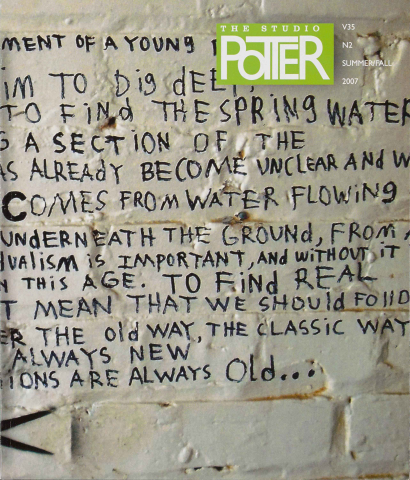 THE STUDIO
POTTER
V35
N2
SUMMER/FALL
2007
MENT OF A YOUNG
IM TO DIg dEEP,
TO FINd THE SPRING WATER
A SECTION OF THE
AS ALREADY BECOME UNCLEAR ANd W
COMES FROM WATER FLOWING
UNdERNEATH THE GROUNd, FROM
dUALISM is IMPORTANT, ANd WITHOUT iT
N THIS AGE. TO FINd REAL
T MEAN THAT WE SHOULd FOllO
ER THE Old WAY, THE CLASSIC WAY
ALWAYS NEW
IONS ARE ALWAYS Old...